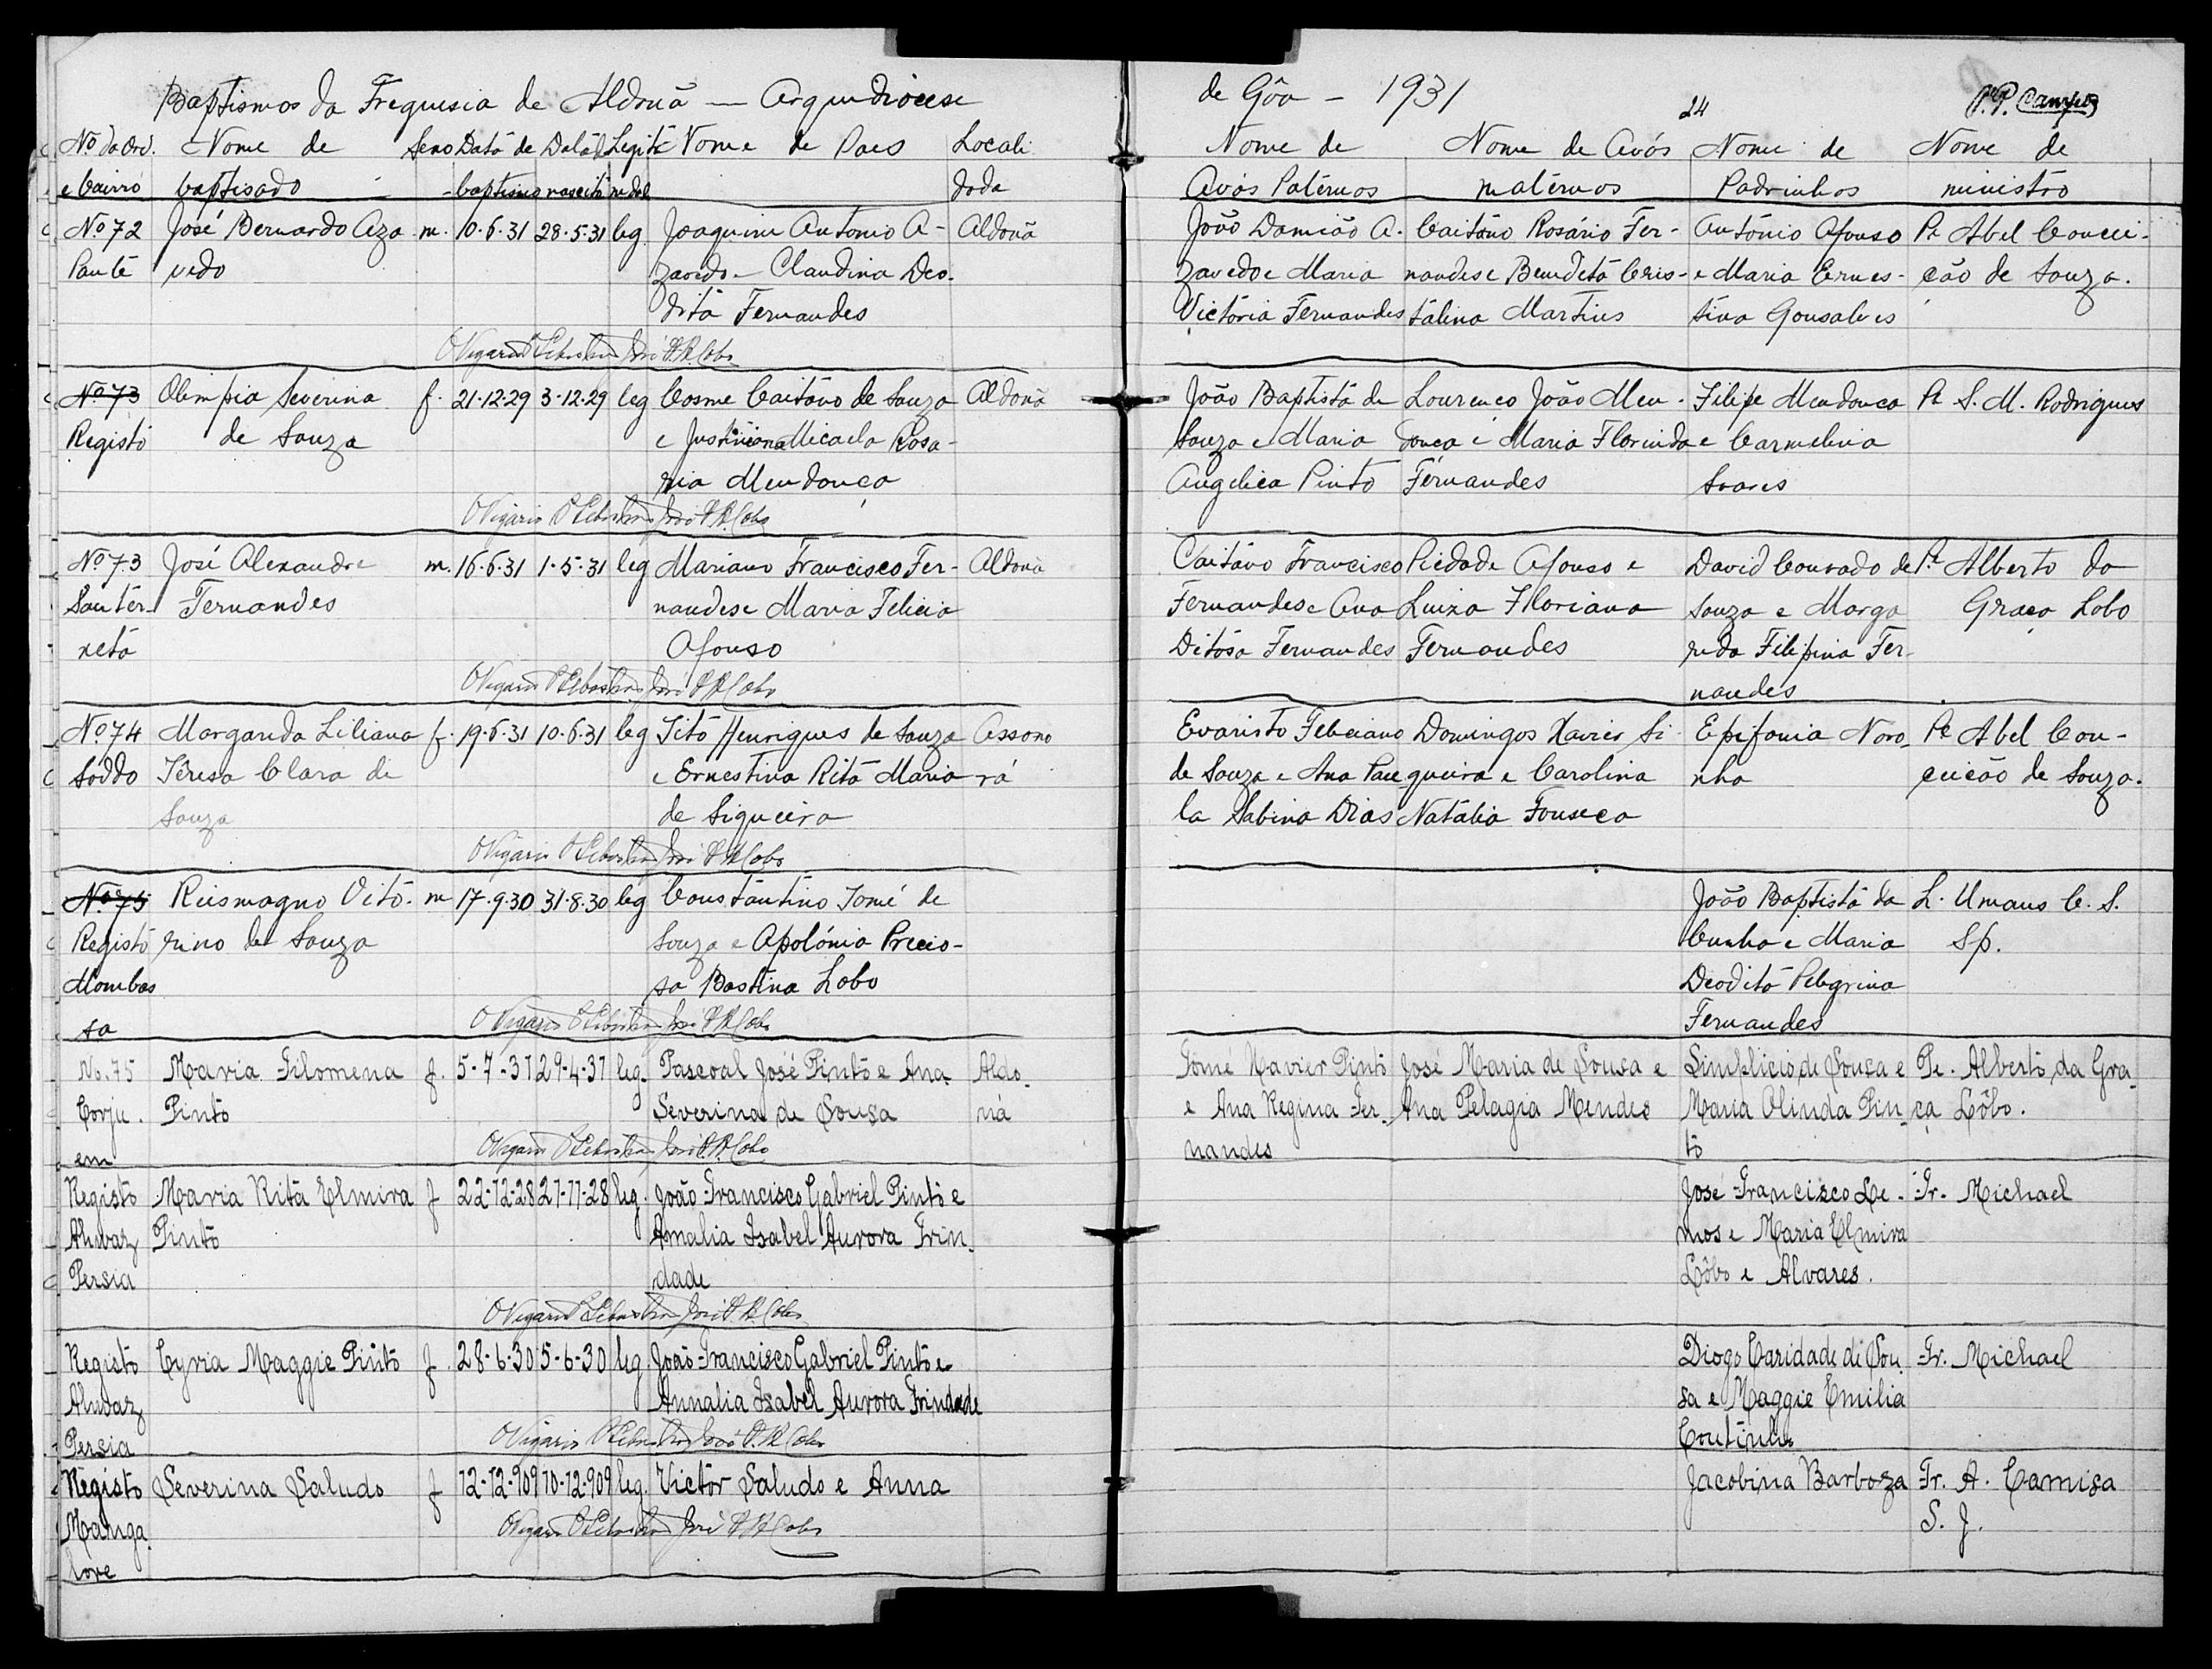 Baptismos da Freguesia de Aldonã — Arquidiocese de Gôa - 1931
24
Nº da Ord. Nome de Sexo Data de Data de Legiti Nome de Paes Locali Nome de Nome de Avós Nome de Nome de
e bairro baptisado baptismo nascitº midade dade Avós Paternos maternos Padrinhos ministro
Nº 72 José Bernardo Aza m. 10.6.31 28.5.31 leg Joaquim Antonio A- Aldonã João Damião A. Caitano Rosário Fer- António Afonso Pe Abel Concei-
vedo zavedo e Claudina Deo- zavedo e Maria nandes e Benedita Cris- e Maria Ernes- ção de Souza.
dita Fernandes Victória Fernandes talina Martins tina Gonsalves
O Vigario P Sebastião José P.R. Lobo
Nº 73 Olimpia Severina f. 21.12.29 3.12.29 leg Cosme Caitano de Souza Aldonã João Baptista de Lourenço João Men- Filipe Mendonca Pe S. M. Rodrigues
Registo de Souza e Justiniana Micaela Rosa- Souza e Maria donca e Maria Florinda e Carmelina
ria Mendonça Angelica Pinto Fernandes Soares
O Vigario P Sebastião José P.R. Lobo
Nº 73 José Alexandre m. 16.6.31 1.5.31 leg Mariano Francisco Fer- Aldonã Caitano Francisco Piedade Afonso e David Conrado de Pe Alberto da
Santer- Fernandes nandes e Maria Felicia Fernandes e Ana Luiza Floriana Souza e Marga Graça Lobo
xeta Afonso Ditosa Fernandes Fernandes rida Filipina Fer-
nandes
O Vigario P Sebastião José P.R. Lobo
Nº 74 Margarida Liliana f. 19.6.31 10.6.31 leg Tito Henriques de Souza Assono Evaristo Feliciano Domingos Xavier Si Epifania Noro- Pe Abel Con-
Soddo Têresa Clara de e Ernestina Rita Maria rá de Souza e Ana Pau queira e Carolina nha ceição de Souza.
Souza de Siqueira la Sabina Dias Natália Fonseca
O Vigario P Sebastião José P.R. Lobo
Nº 75 Reismagno Vito- m 17.9.30 31.8.30 leg Constantino Tomé de João Baptista da L. Umaus C. S.
Registo rino de Souza Souza e Apolónia Precio- Cunha e Maria Sp.
Mombas sa Bastina Lobo Deodita Pelegrina
sa Fernandes
O Vigario P Sebastião José P.R. Lobo
No. 75 Maria Filomena f. 5-7-31 29-4-31 leg. Pascoal José Pinto e Ana Aldo- Tomé Xavier Pinto José Maria de Sousa e Simplicio de Sousa e Pe. Alberto da Gra-
Corju. Pinto Severina de Sousa ná e Ana Regina Fer- Ana Pelagia Mendes Maria Olinda Pin- ça Lôbo.
em nandes to
O Vigario P Sebastião José P.R. Lobo
Registo Maria Rita Elmira f 22-12-28 21-11-28 leg. João Francisco Gabriel Pinto e José Francisco Le- Fr. Michael
Ahwaz Pinto Amalia Isabel Aurora Trin- mos e Maria Elmira
Persia dade Lôbo e Alvares.
O Vigario P Sebastião José P.R. Lobo
Registo Cyria Maggie Pinto f. 28-6-30 5-6-30 leg João Francisco Gabriel Pinto e Diogo Caridade de Sou Fr. Michael
Ahwaz Annalia Isabel Aurora Trindade sa e Maggie Emilia
Persia Coutinho
O Vigario P Sebastião José P.R. Lobo
Registo Severina Saludo f 12-12-909 10-12-909 leg. Victor Saludo e Anna Jacobina Barboza Fr. A. Camisa
Manga S. J.
lore
O Vigario P Sebastião José P.R. Lobo